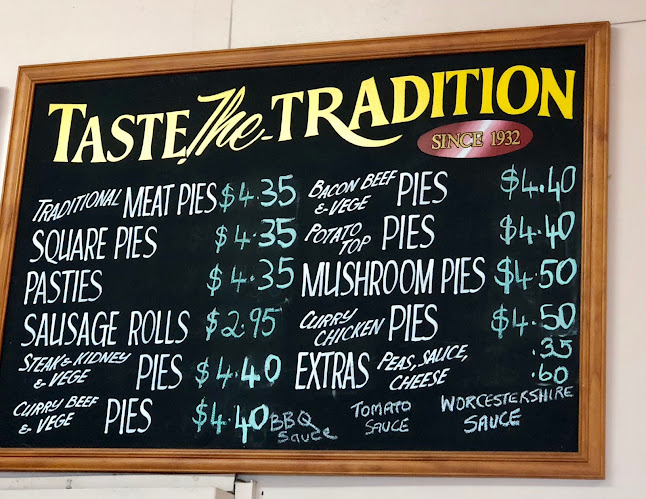 TASTE The TRADITION
SINCE 1932
TRADITIONAL MEAT PIES $4.35
SQUARE PIES $4.35
PASTIES $4.35
SAUSAGE ROLLS $2.95
STEAK & KIDNEY & VEGE PIES $4.40
CURRY BEEF & VEGE PIES $4.40
BACON BEEF & VEGE PIES $4.40
POTATO TOP PIES $4.40
MUSHROOM PIES $4.50
CURRY CHICKEN PIES $4.50
EXTRAS PEAS, SAUCE, .35
CHEESE .60
BBQ SAUCE
TOMATO SAUCE
WORCESTERSHIRE SAUCE